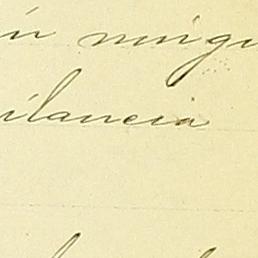 ún ningu
ilancia